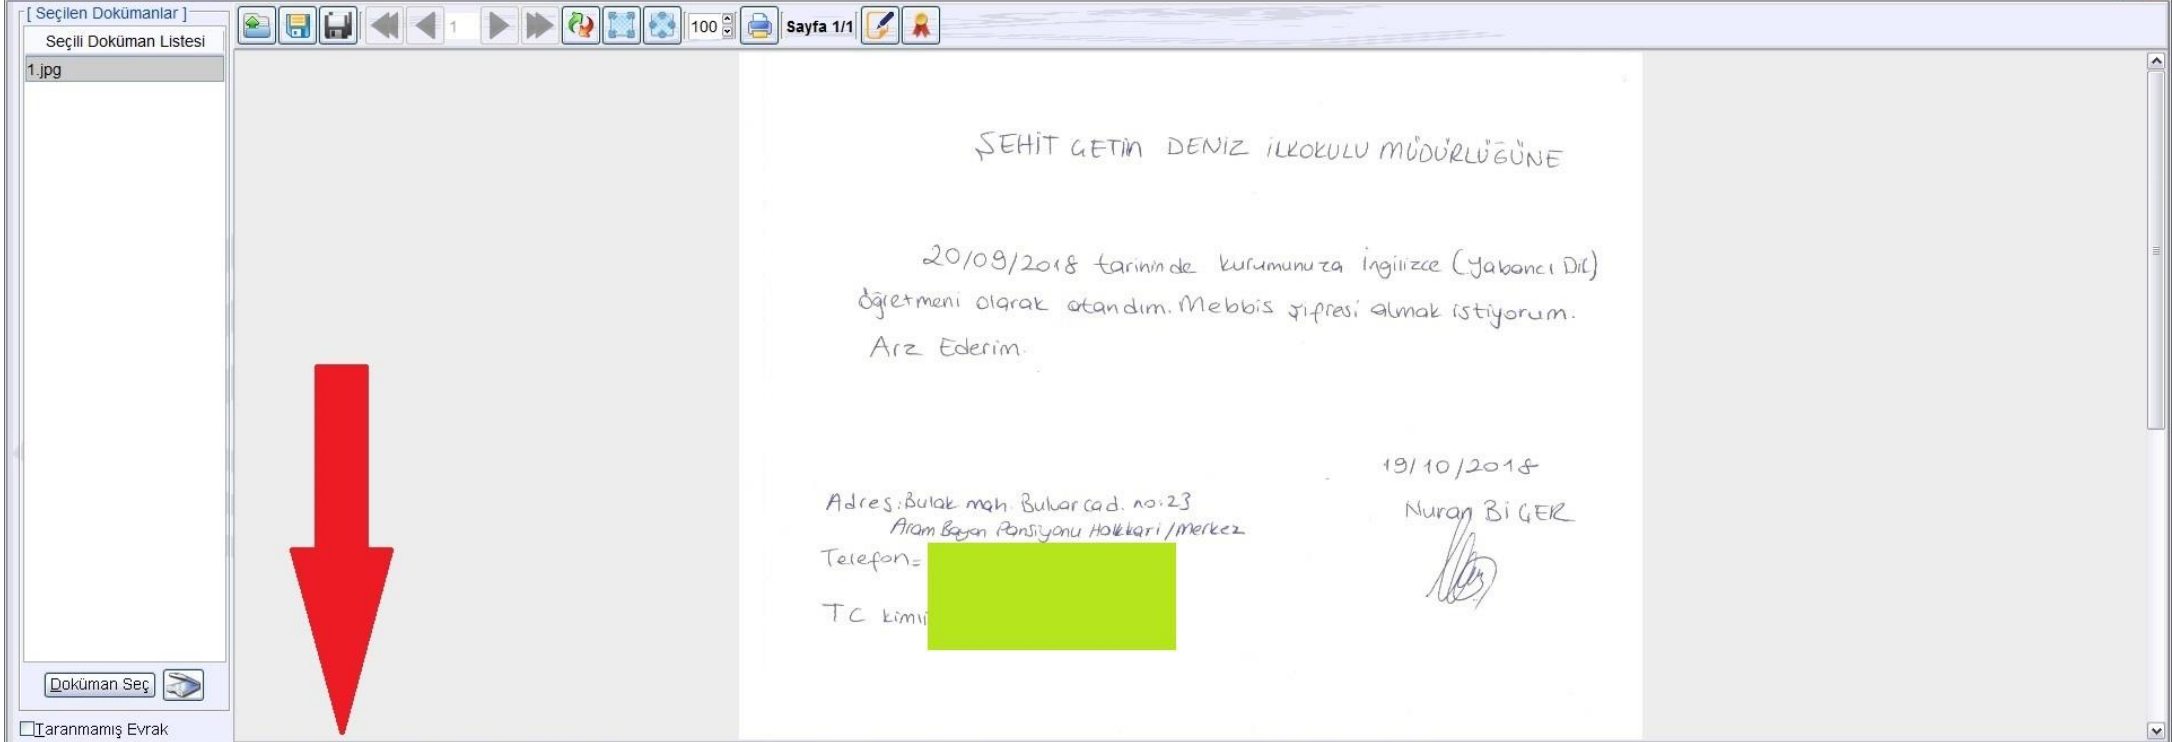 [ Seçilen Dokümanlar ]
Seçili Doküman Listesi
1.jpg
1
100
Sayfa 1/1
ŞEHİT ÇETİN DENİZ İLKOKULU MÜDÜRLÜĞÜNE
20/09/2018 tarininde kurumunuza İngilizce (Yabancı Dil)
öğretmeni olarak atandım. Mebbis şifresi almak istiyorum.
Arz Ederim.
19/10/2018
Nuran BİÇER
Adres: Bulak mah. Bulvar cad. no:23
Aram Bayan Pansiyonu Hakkari/Merkez
Telefon=
TC kimli
Doküman Seç
Taranmamış Evrak